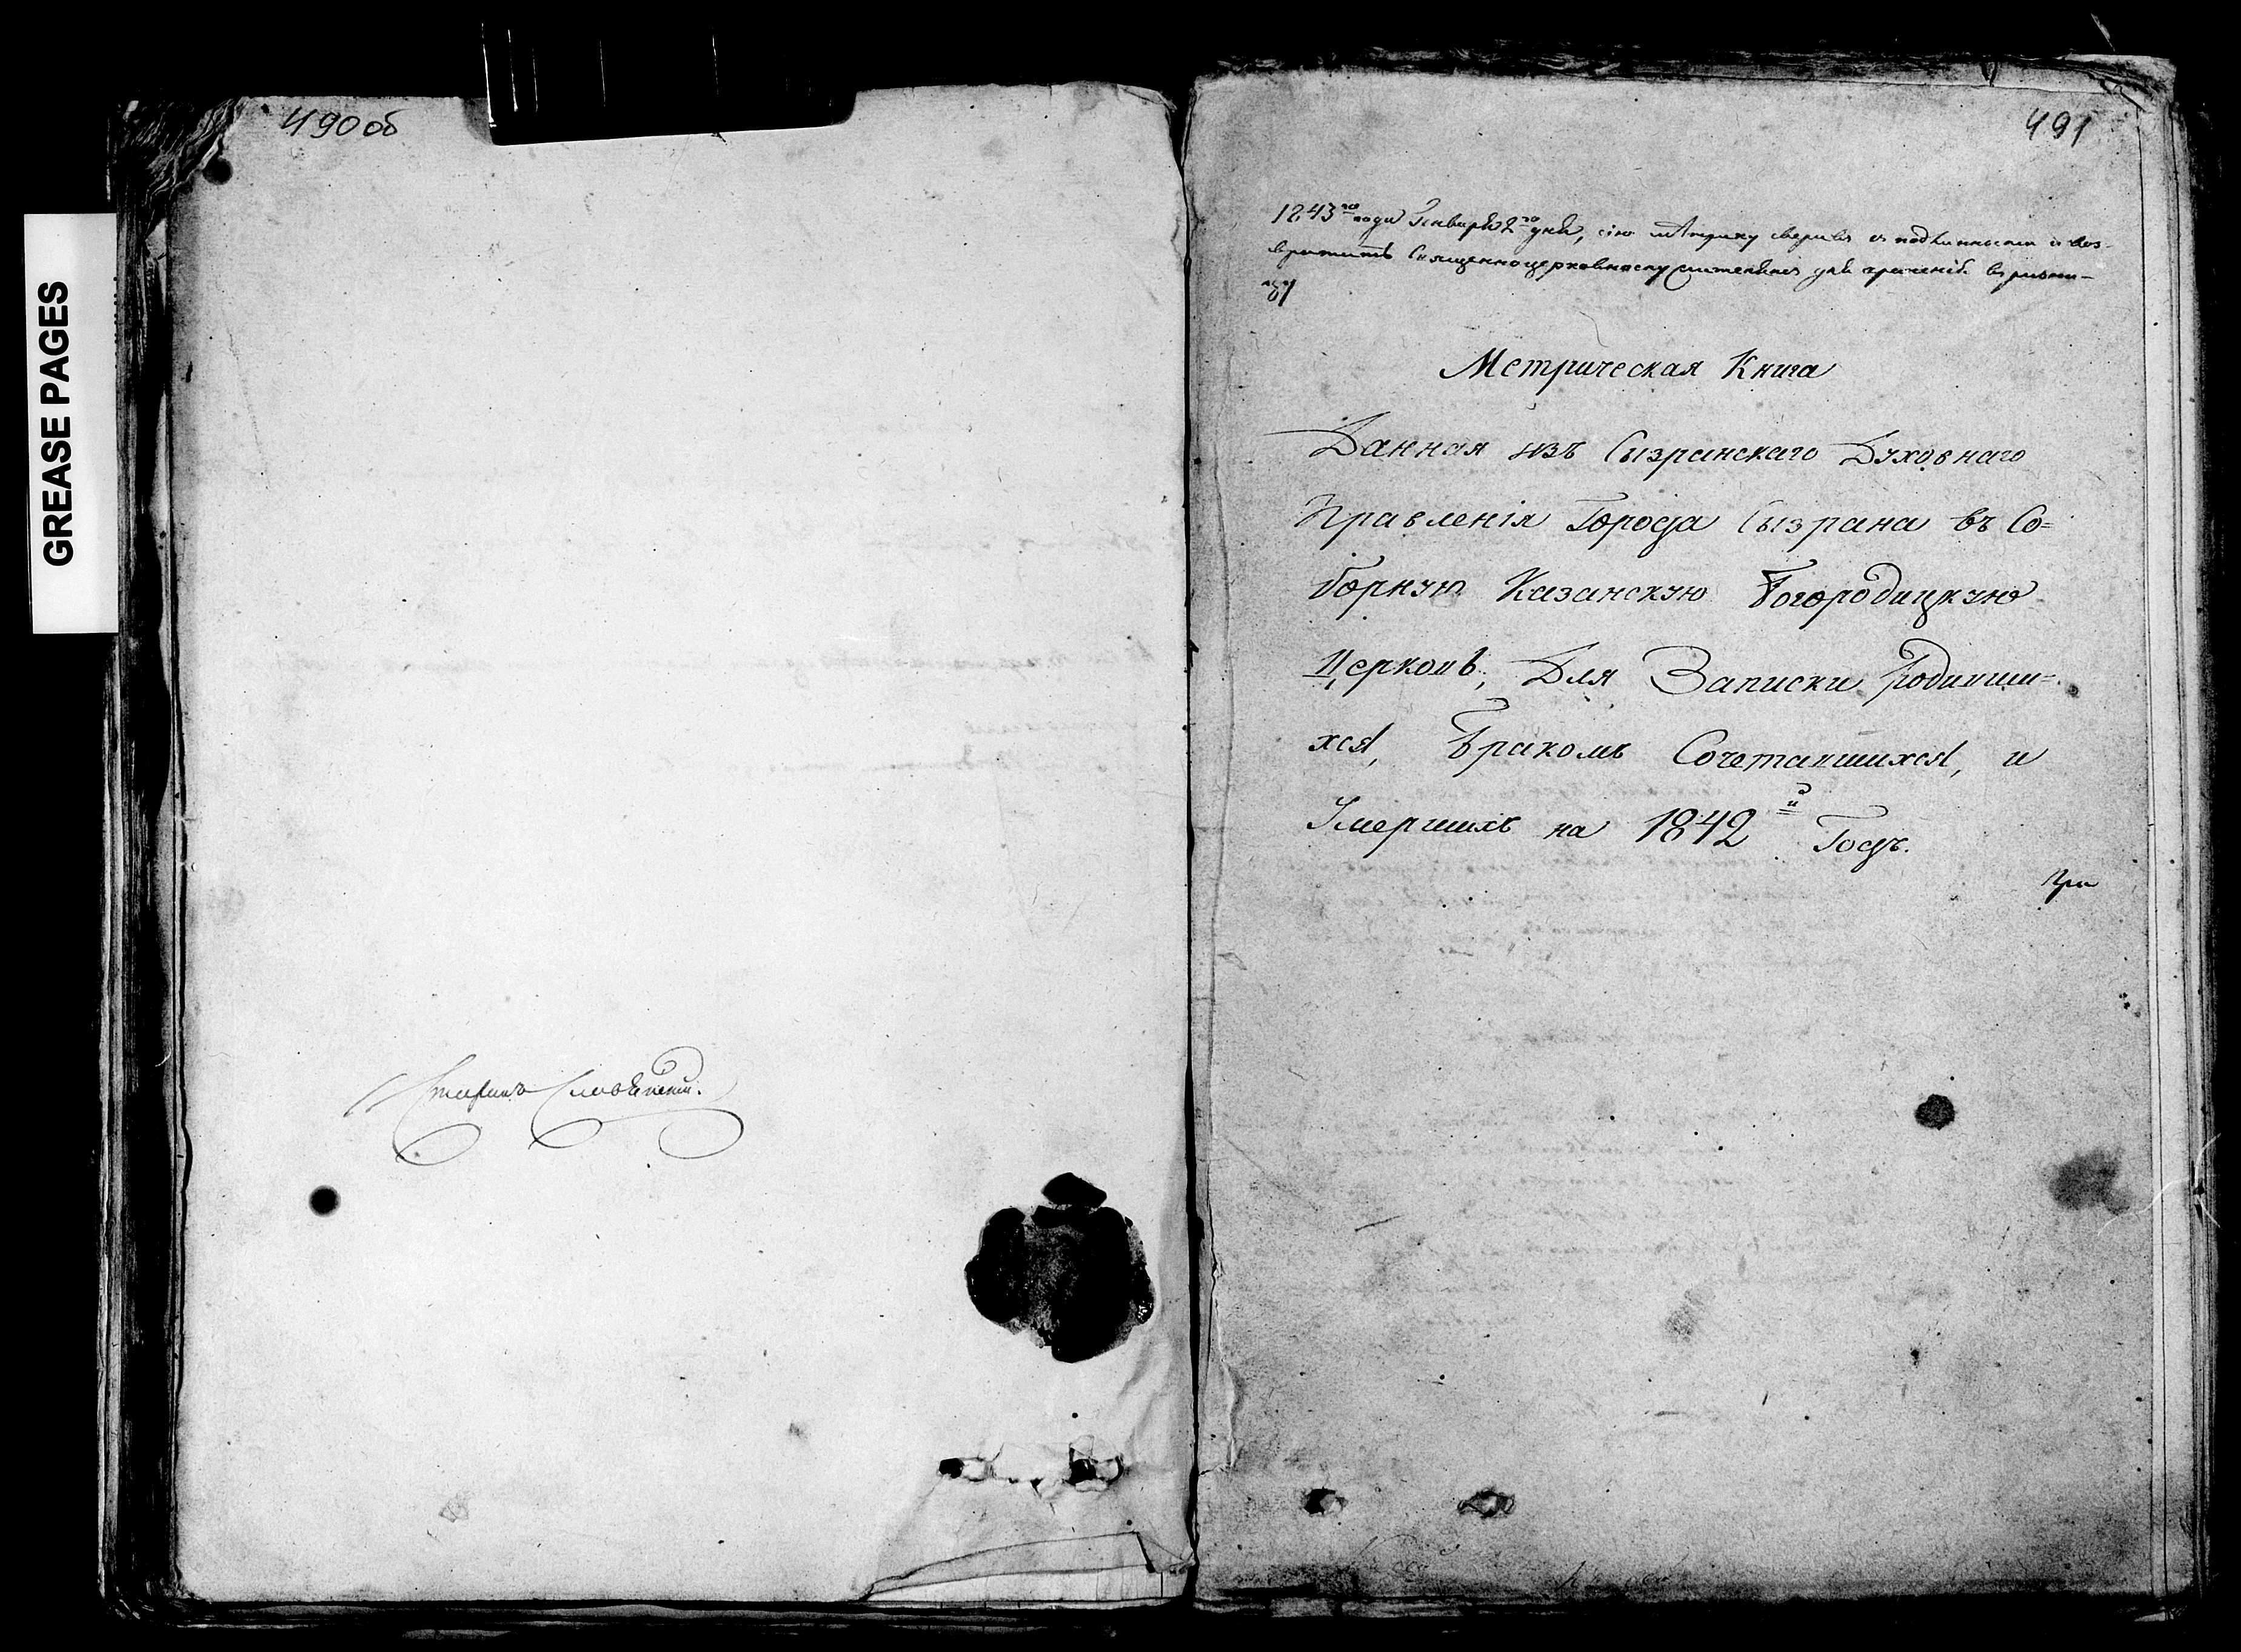 GREASE PAGES
490об
491
1843го года Генваря 2го дня, сію метрику сверивъ съ подлинностію воз-
вратить Священноцерковнослужителямъ для храненія въ ризни-
цу
Метрическая Книга
Данная изъ Сызранскаго Духовнаго
Правленія Города Сызрана въ Со=
борную Казанскую Богородицкую
Церковь, Для Записки Родивши=
хся, Бракомъ Сочетавшихся, и
Умершихъ на 1842й Годъ.
При